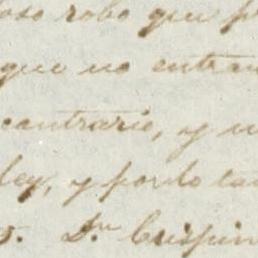 oso robo que p
que no entra
contrario, y u
ley, y por lo ta
o. Dn Crispin